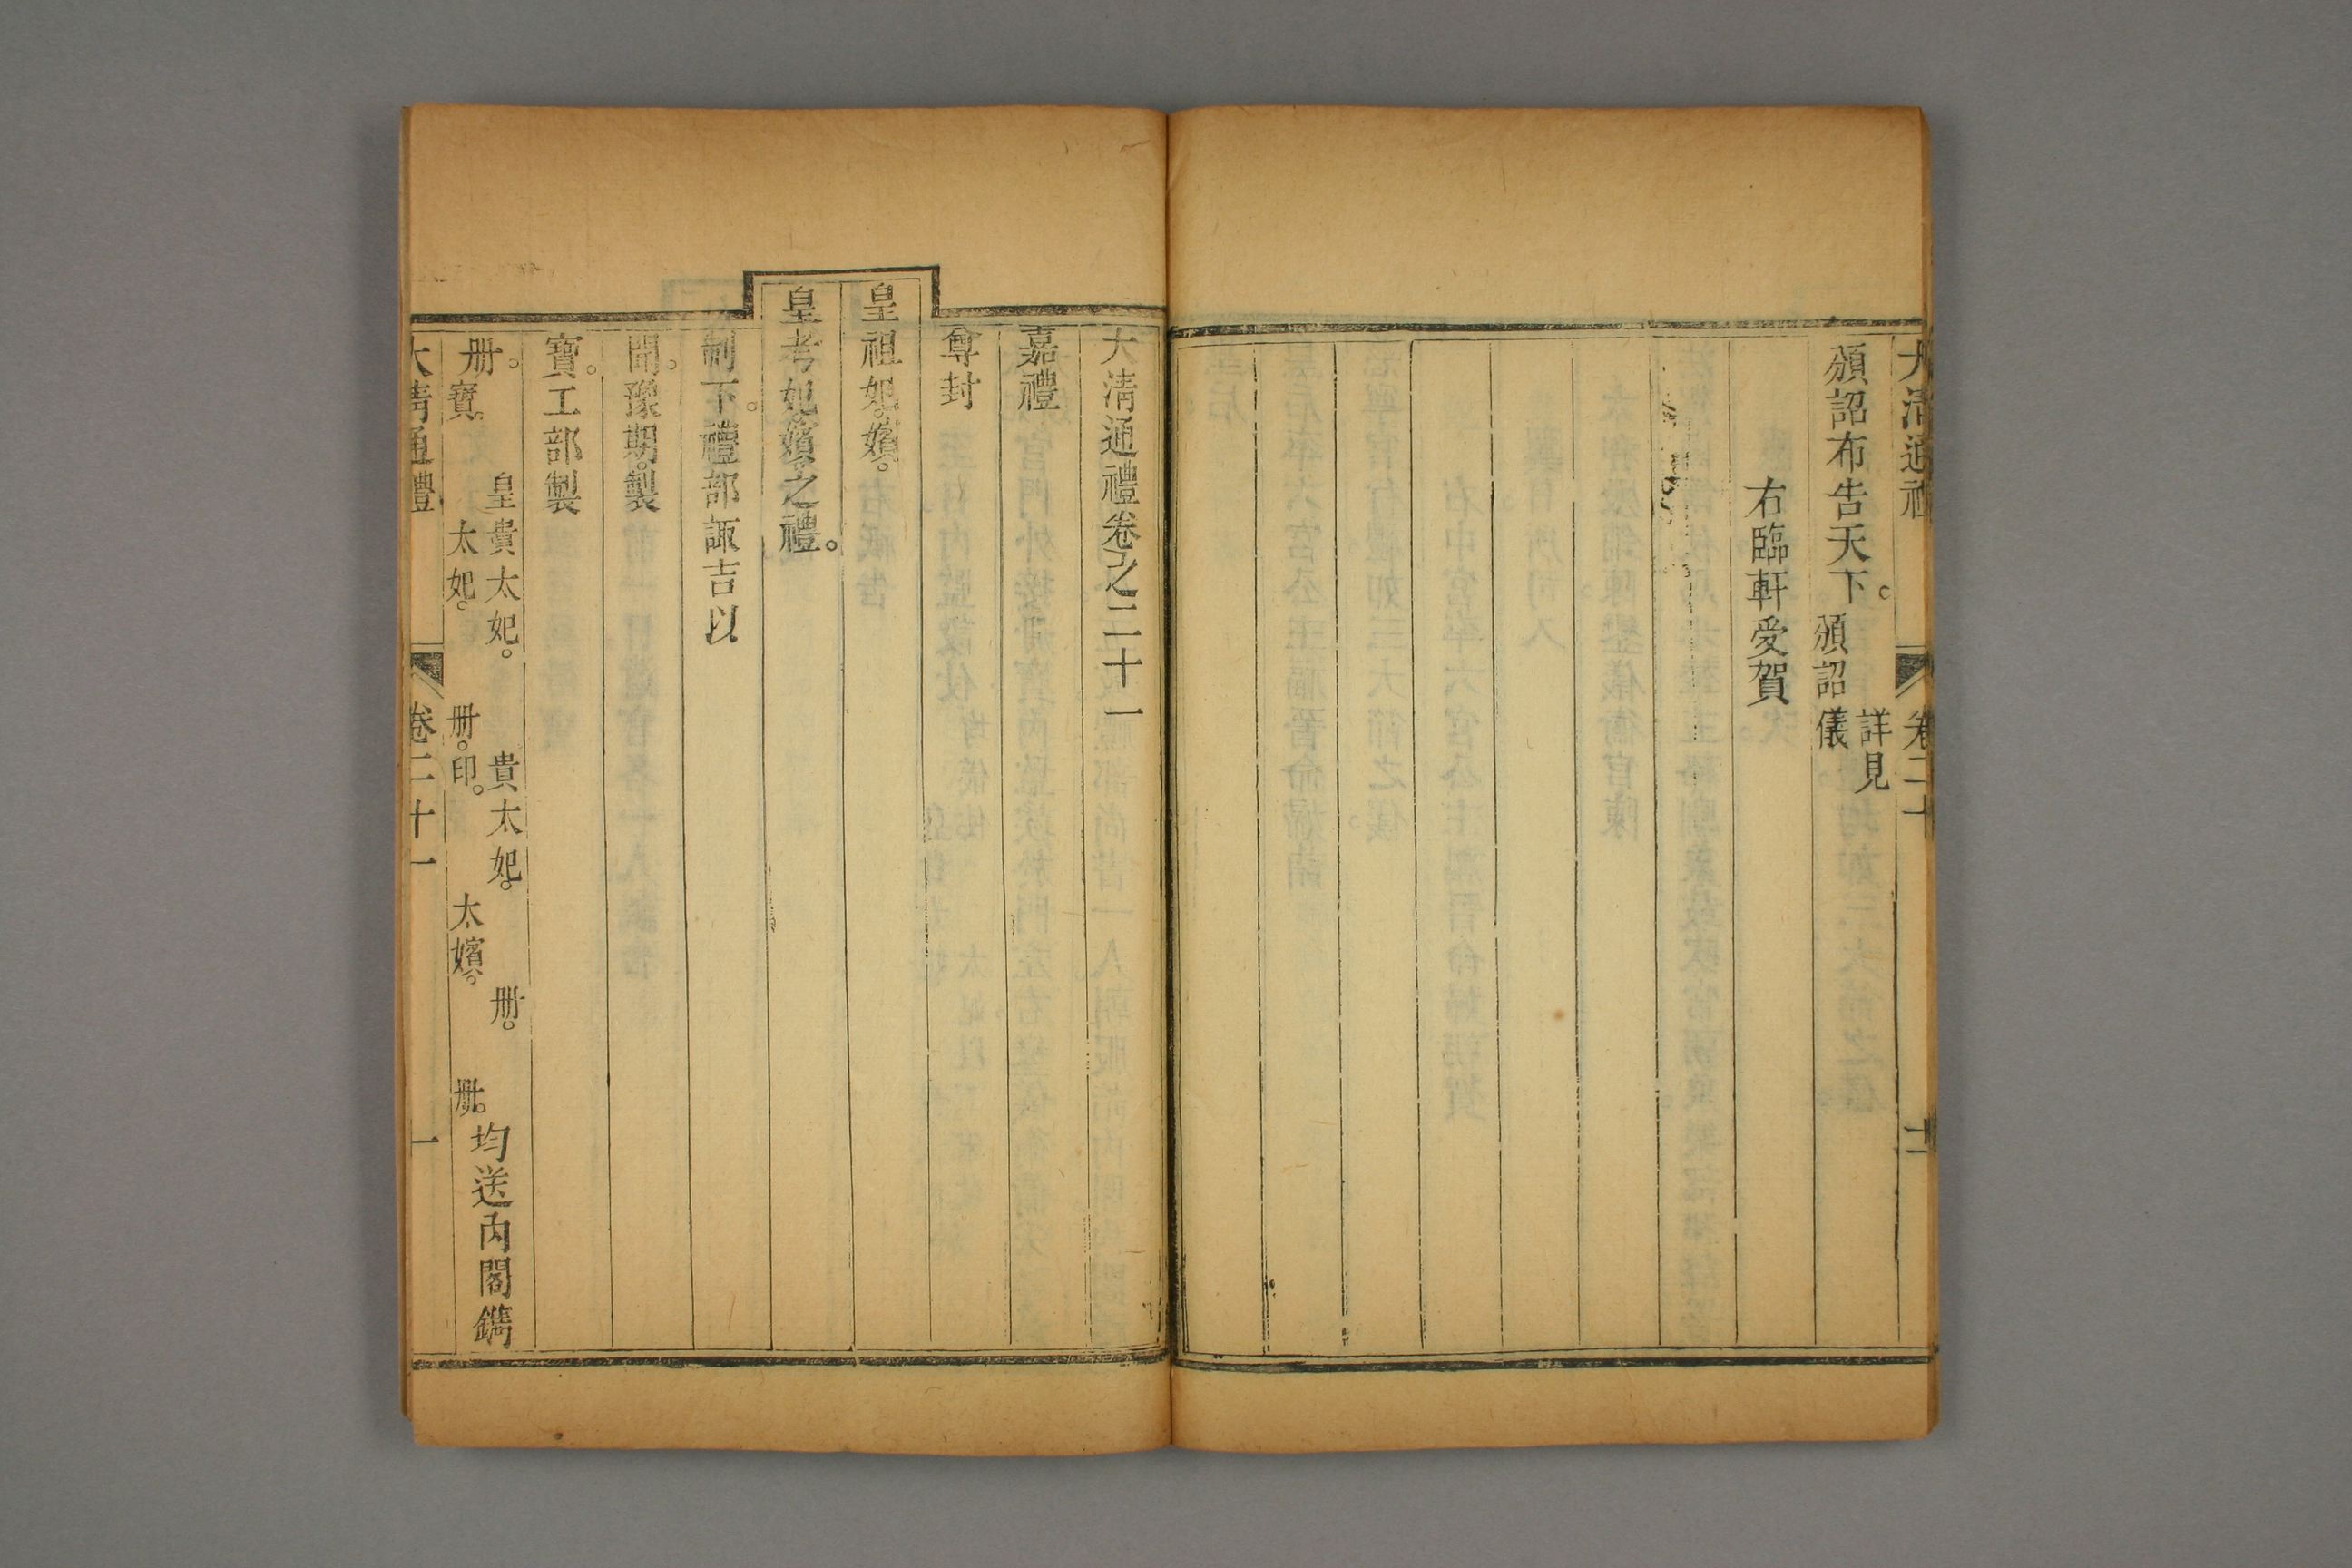 大清通禮 卷二十
頒詔布告天下。詳見
頒詔儀
右臨軒受賀
大清通禮卷之二十一
嘉禮
尊封
皇祖妃。嬪。
皇考妃。嬪之禮。
制下。禮部諏吉以
聞。豫期。製
寶。工部製
册。皇貴太妃。貴太妃。册。
寶。太妃。册。印。太嬪。册。
均送内閣鐫
大清通禮 卷二十一 一